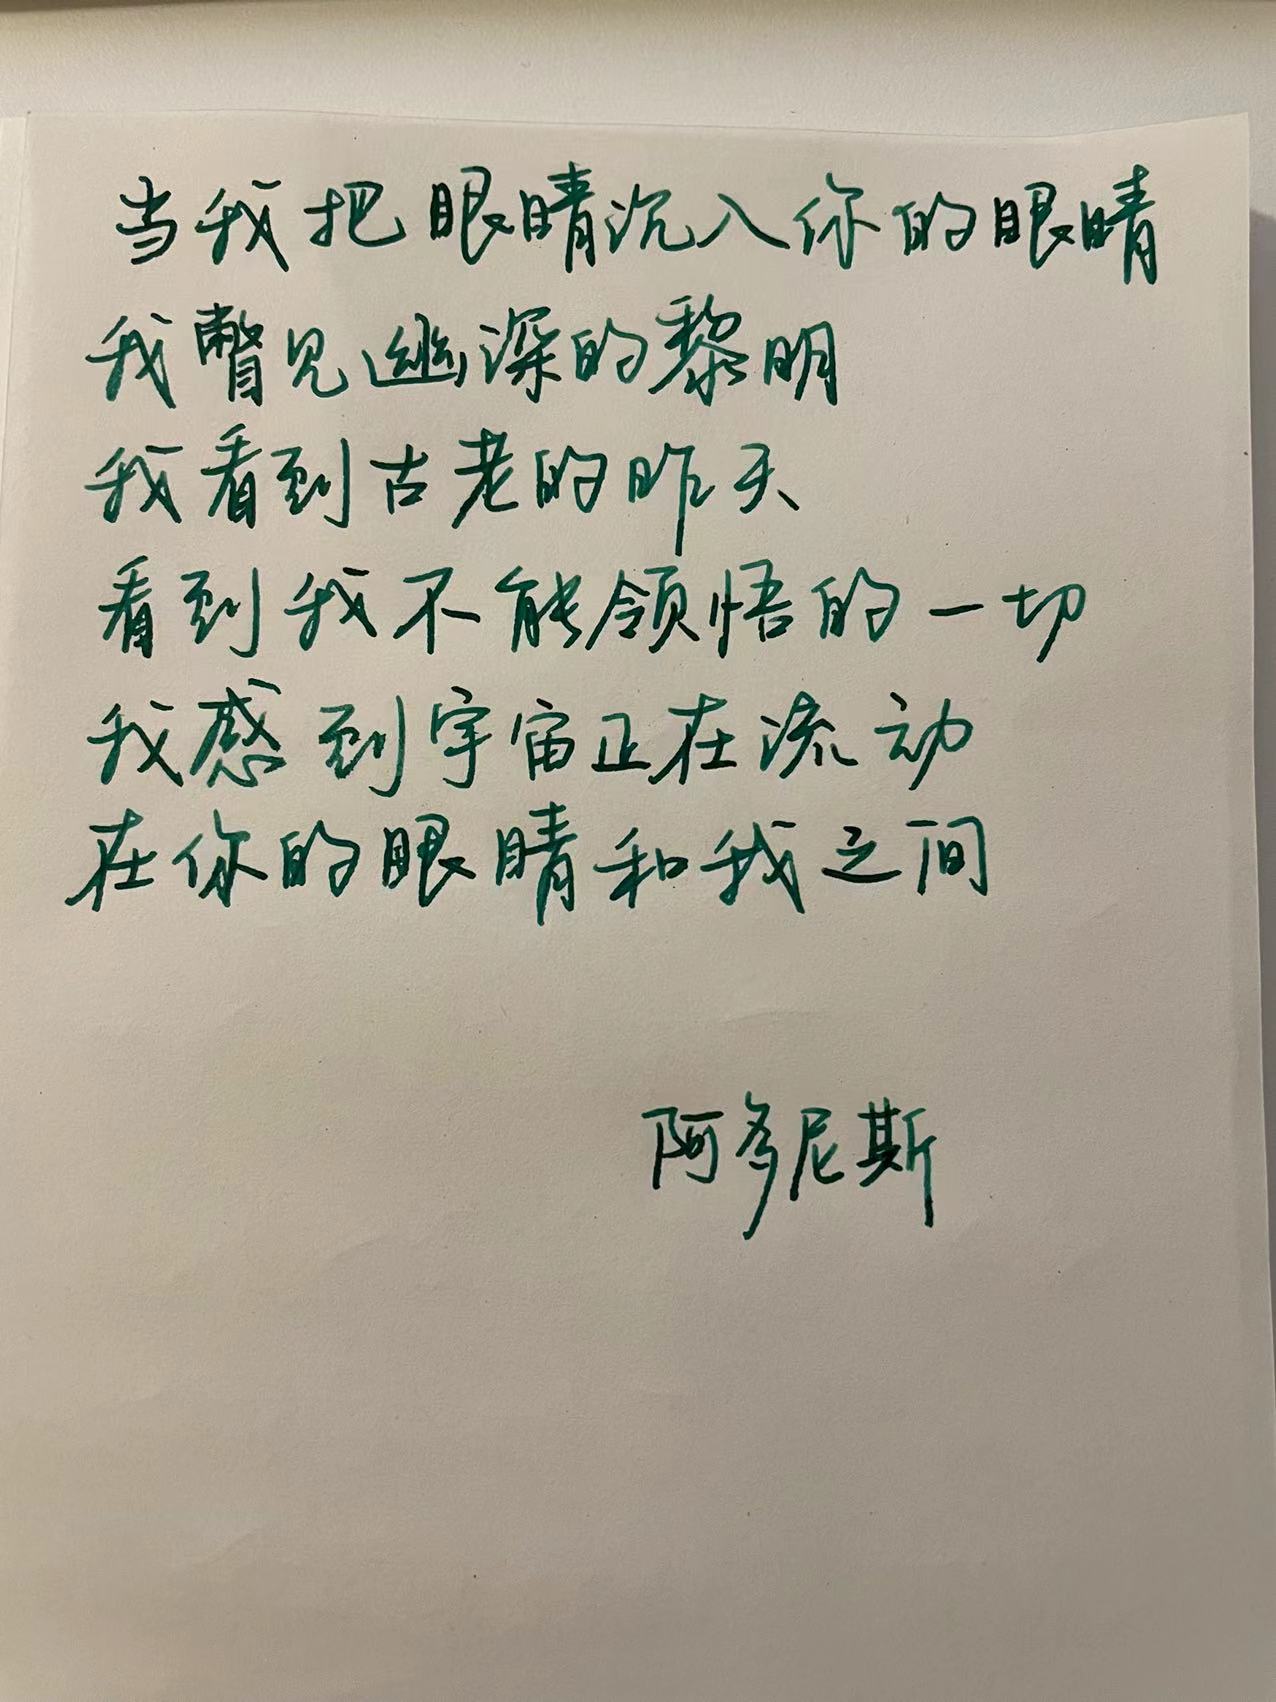 当我把眼睛沉入你的眼睛
我瞥见幽深的黎明
我看到古老的昨天
看到我不能领悟的一切
我感到宇宙正在流动
在你的眼睛和我之间
阿多尼斯